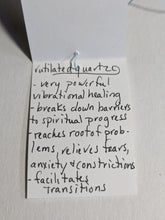 rutilated quartz
- very powerful
vibrational healing
- breaks down barriers
to spiritual progress
- reaches root of prob-
lems, relieves fears,
anxiety & constrictions
- facilitates
transitions